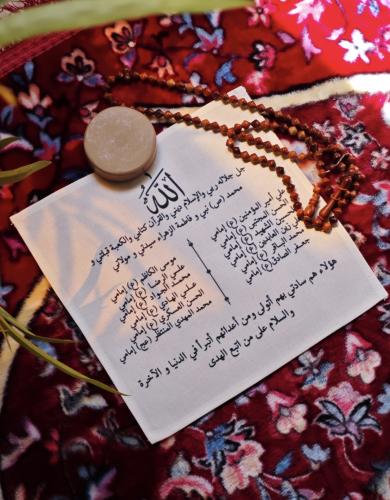 الله
جل جلاله ربي والإسلام ديني والقرآن كتابي والكعبة قبلتي و
محمد (ص) نبيي و فاطمة الزهراء سيدتي و مولاتي
علي أمير المؤمنين (ع) إمامي
الحسن المجتبى (ع) إمامي
الحسين الشهيد (ع) إمامي
زين العابدين (ع) إمامي
محمد الباقر (ع) إمامي
جعفر الصادق (ع) إمامي
موسى الكاظم (ع) إمامي
علي الرضا (ع) إمامي
محمد الجواد (ع) إمامي
علي الهادي (ع) إمامي
الحسن العسكري (ع) إمامي
محمد المهدي المنتظر (عج) إمامي
هؤلاء هم سادتي بهم أتولى ومن أعدائهم أتبرأ في الدنيا و الآخرة
والسلام على من اتبع الهدى